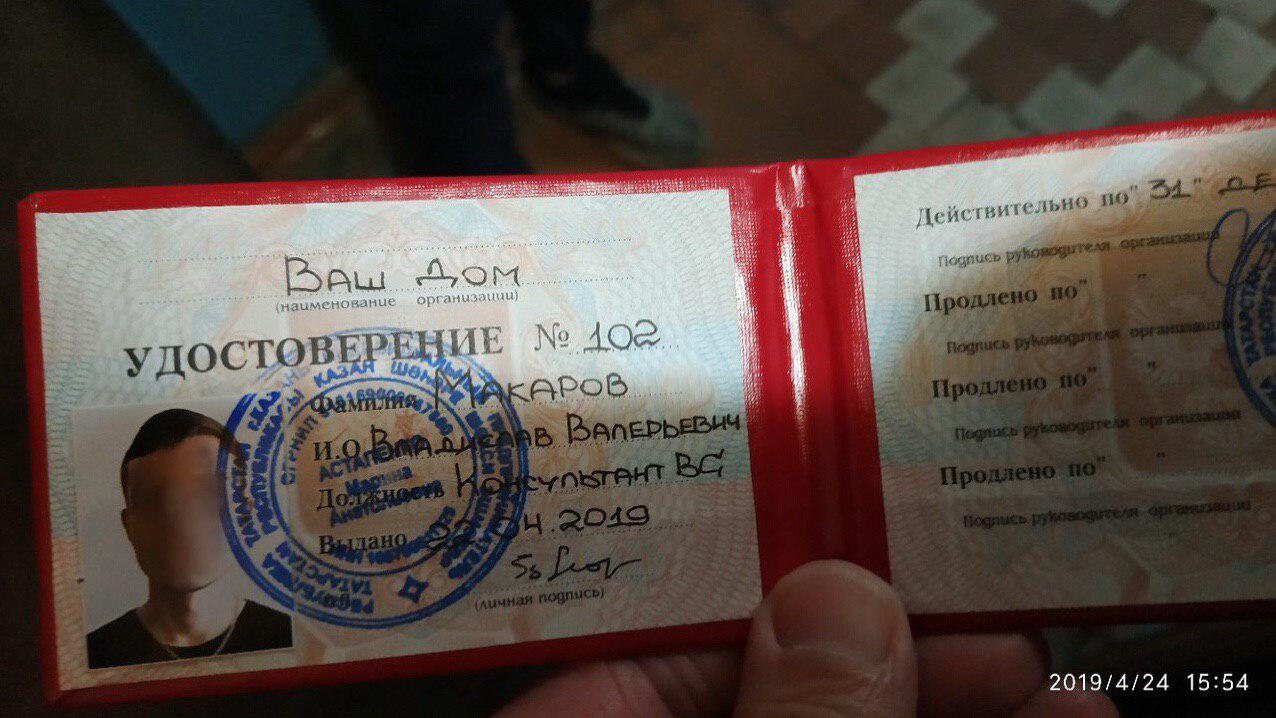 ВАШ ДОМ
(наименование организации)
УДОСТОВЕРЕНИЕ № 102
Фамилия МАКАРОВ
И.О. ВЛАДИСЛАВ ВАЛЕРЬЕВИЧ
Должность КОНСУЛЬТАНТ ВС
Выдано 22.04.2019
(личная подпись)
РЕСПУБЛИКА ТАТАРСТАН
ТАТАРСТАН РЕСПУБЛИКАСЫ КАЗАН ШӘҺӘРЕ
ОГРНИП
Марина
Анатольевна
Действительно по "31" ДЕ
Подпись руководителя организации
Продлено по" "
Подпись руководителя организации
Продлено по" "
Подпись руководителя организации
Продлено по" "
Подпись руководителя организации
ТАТАРСТАН
2019/4/24 15:54